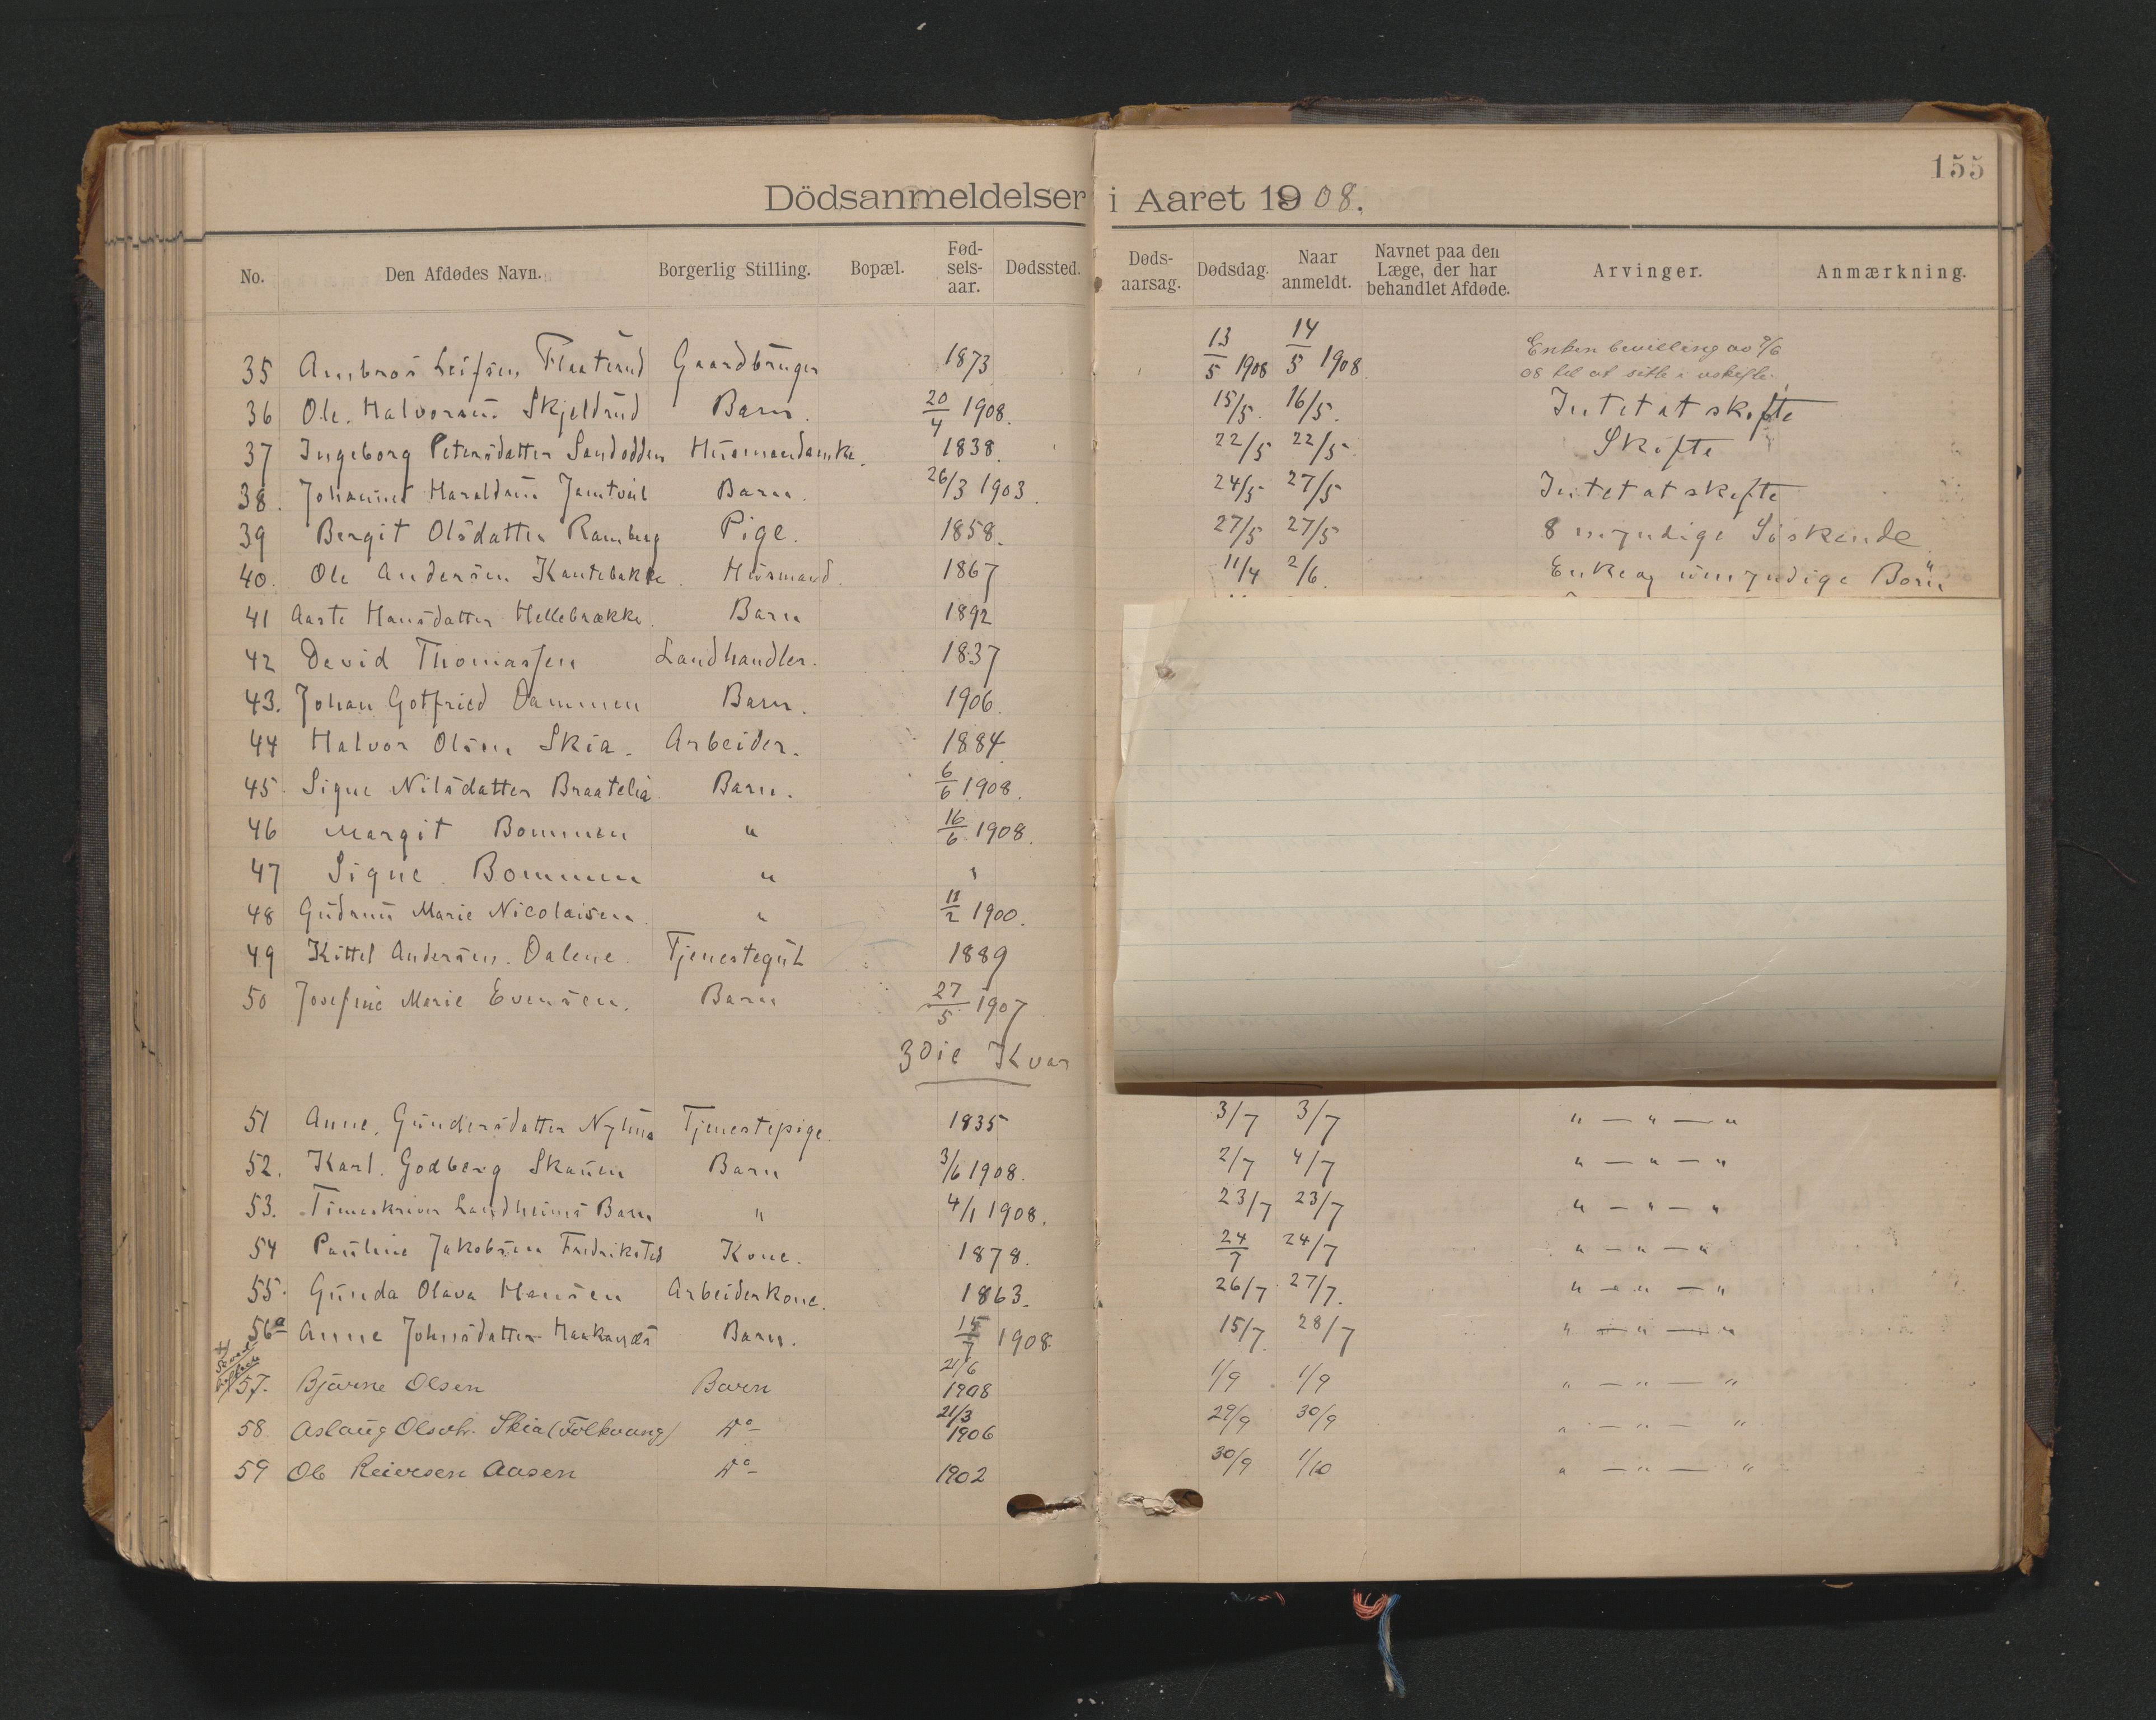 155
Dödsanmeldelser i Aaret 1908.
No. Den Afdødes Navn. Borgerlig Stilling. Bopæl. Fød-sels-aar. Dødssted. Døds-aarsag. Dødsdag. Naar anmeldt. Navnet paa den Læge, der har behandlet Afdøde. Arvinger. Anmærkning.
35 Ambros Leifsen Flaterud Gaardbruger 1873 13/5 1908 14/5 1908 Enken bevilling av 9/6
08 til at sitte i uskifte.
36 Ole Halvorsen Skjeldrud Barn. 20/4 1908. 15/5. 16/5. Intet at skifte
37 Ingeborg Petersdatter Sandodden Husmandsenke. 1838. 22/5 22/5. Skifte
38. Johannes Haraldsen Barn. 26/3 1903. 24/5 27/5 Intet at skifte
39 Bergit Olsdatter Ramberg Pige. 1858. 27/5 27/5 8 myndige Søskende
40. Ole Andersen Husmand. 1867 11/4 2/6. Enke og umyndige Børn
41 Aaste Hansdatter Hellebrække. Barn 1892
42 David Thomassen Landhandler. 1837
43. Johan Gotfried Dammen Barn. 1906.
44 Halvor Olsen Skia. Arbeider. 1884.
45. Signe Nilsdatter Braatelia Barn. 6/6 1908.
46 Margit Bommen " 16/6 1908.
47 Signe Bommen " "
48 Gudrun Marie Nicolaisen. " 11/2 1900.
49 Kittel Andersen. Dalene. Tjenestegut 1889
50 Josefine Marie Evensen. Barn 27/5 1907
3die Kvar
51 Anne. Gundersdatter Tjenestepige. 1835 3/7 3/7 " — " — "
52. Karl. Godberg Skauen Barn 3/6 1908. 2/7 4/7 " — " — "
53. Landheims Barn " 4/1 1908. 23/7 23/7 " — " — "
54 Pauline Jakobsen Kone. 1878. 24/7 24/7 " — " — "
55. Gunda Olava Hansen Arbeiderkone. 1863. 26/7 27/7. " — " — "
56a Anne Johnsdatter Haakanes Barn. 15/7 1908. 15/7. 28/7 " — " — "
57. Bjarne Olsen Barn 21/6 1908 1/9 1/9 " — " — "
58 Aslaug Olsdtr. Skia (Folkvang) Do 21/3 1906 29/9 30/9 " — " — "
59 Ole Reiersen Aasen Do 1902 30/9 1/10 " — " — "